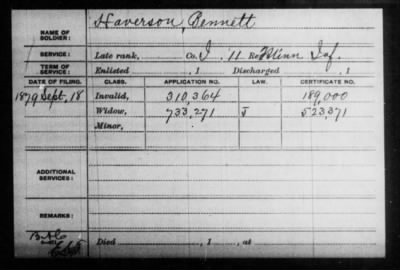 NAME OF SOLDIER: Haverson, Bennett
SERVICE: Late rank, Co. I, 11 Reg't Minn Inf.
TERM OF SERVICE: Enlisted , 1 Discharged , 1
DATE OF FILING. CLASS. APPLICATION NO. LAW. CERTIFICATE NO.
1879 Sept, 18 Invalid, 310,364 189,000
Widow, 733,271 J 523,371
Minor,
ADDITIONAL SERVICES:
REMARKS:
Died , 1 , at